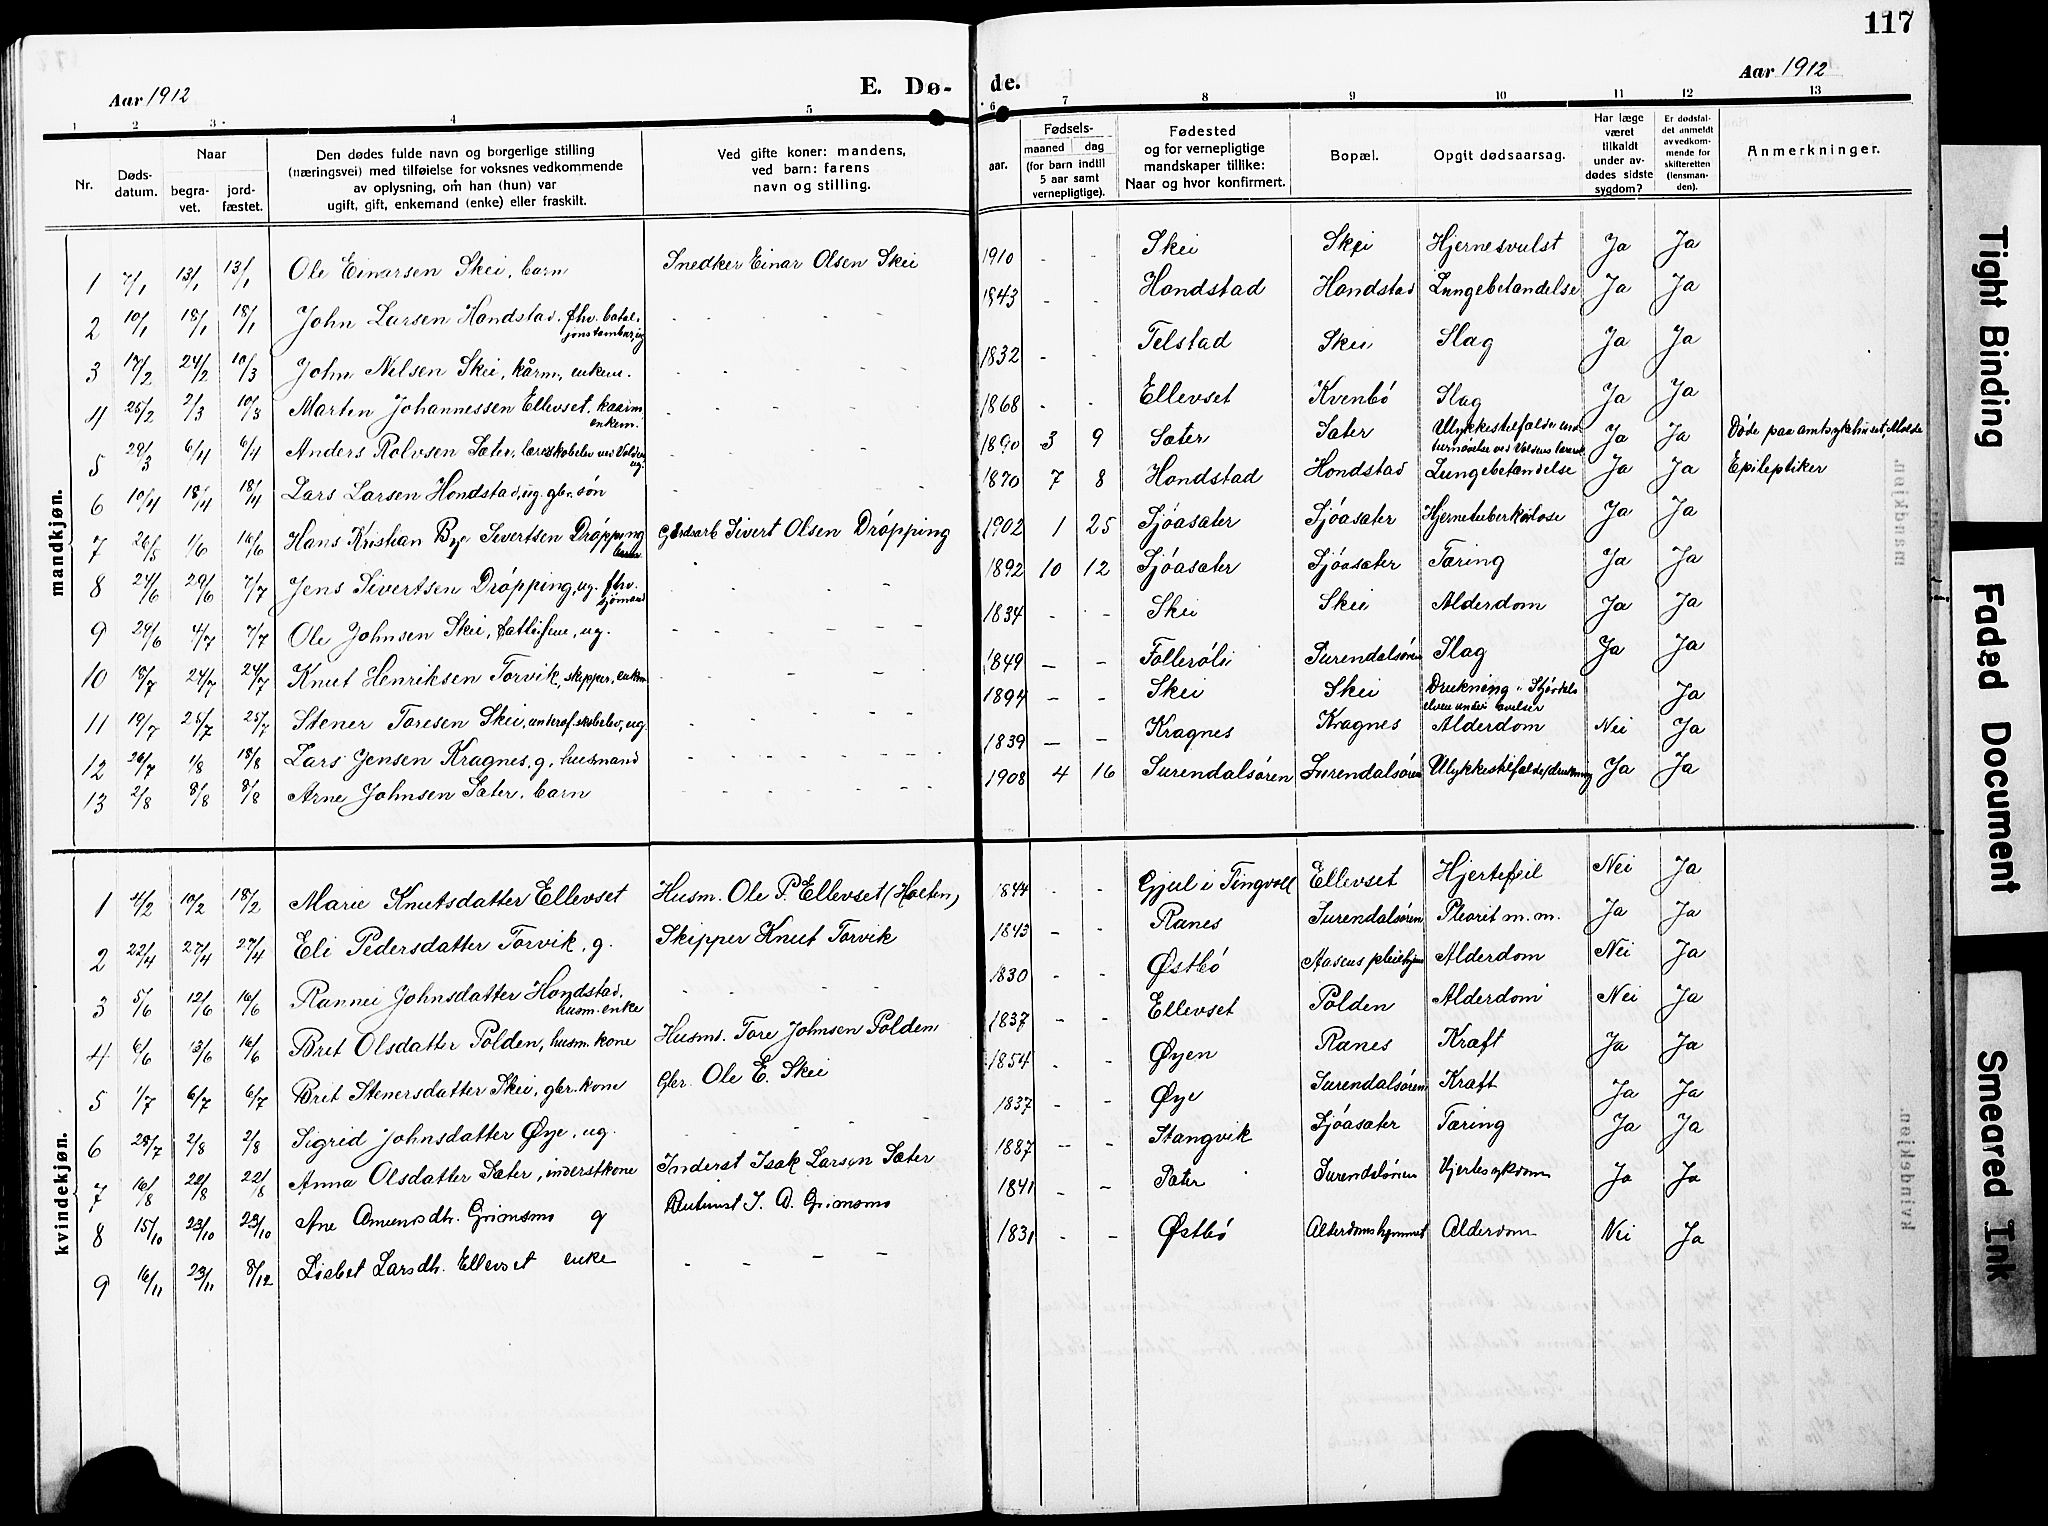 117
Aar 1912
E. Dø-
de.
Aar 1912
1 2 3 4 5
6 7 8 9 10 11 12 13
Nr.
Døds-
datum.
Naar
begra-
vet.
jord-
fæstet.
Den dødes fulde navn og borgerlige stilling
(næringsvei) med tilføielse for voksnes vedkommende
av oplysning, om han (hun) var
ugift, gift, enkemand (enke) eller fraskilt.
Ved gifte koner: mandens,
ved barn: farens
navn og stilling.
aar.
Fødsels-
maaned dag
(for barn indtil
5 aar samt
vernepligtige).
Fødested
og for vernepligtige
mandskaper tillike:
Naar og hvor konfirmert.
Bopæl.
Opgit dødsaarsag.
Har læge
været
tilkaldt
under av-
dødes sidste
sygdom?
Er dødsfal-
det anmeldt
av vedkom-
mende for
skifteretten
(lensman-
den).
Anmerkninger.
mandkjøn.
1 7/1 13/1 13/1 Ole Einarsen Skei, barn Snedker Einar Olsen Skei 1910 - - Skei Skei Hjernesvulst Ja Ja
2 10/1 18/1 18/1 John Larsen Hondstad, fhv. batal-
jonstambur, ug 1843 - - Hondstad Hondstad Lungebetændelse Ja Ja
3 17/2 24/2 10/3 John Nilsen Skei, kårm., enkem. 1832 - - Telstad Skei Slag Ja Ja
4 25/2 2/3 10/3 Marten Johannessen Ellevset, kaarm.
enkem. 1868 - - Ellevset Kvenbö Slag Ja Ja
5 29/3 6/4 6/4 Anders Rolvsen Sæter, læreskoleelev ved Volden
ug. 1890 3 9 Sæter Sæter Ulykkestilfælde under
turnøvelse ved Voldens lærersk. Ja Ja Døde paa amtssykehuset, Molde
6 10/4 18/4 18/4 Lars Larsen Hondstad, ug. gbr. søn 1870 7 8 Hondstad Hondstad Lungebetændelse Ja Ja Epileptiker
7 26/5 1/6 16/6 Hans Kristian Bye Sivertsen Dröpping
barn Gårdsarb Sivert Olsen Dröpping 1902 1 25 Sjöasæter Sjöasæter Hjernetuberkulose Ja Ja
8 24/6 29/6 7/7 Jens Sivertsen Dröpping, ug. fhv.
sjömand 1892 10 12 Sjöasæter Sjöasæter Tæring Ja Ja
9 29/6 4/7 7/7 Ole Johnsen Skei, fattiglem, ug. 1834 - - Skei Skei Alderdom Ja Ja
10 18/7 24/7 24/7 Knut Henriksen Torvik, skipper, enkem 1849 - - Folleröli Surendalsören Slag Ja Ja
11 19/7 25/7 25/7 Stener Toresen Skei, underof. skoleelev, ug. 1894 - - Skei Skei Drukning i Stjördals
elven under øvelser Ja
12 26/7 1/8 18/8 Lars Jensen Kragnes, g, husmand 1839 - - Kragnes Kragnes Alderdom Nei Ja
13 2/8 8/8 8/8 Arne Johnsen Sæter, barn 1908 4 16 Surendalsören Surendalsören Ulykkestilfælde, drukning Ja Ja
kvindekjøn.
1 4/2 10/2 18/2 Marie Knutsdatter Ellevset Husm. Ole P. Ellevset (Holten) 1844 - - Gjul i Tingvoll Ellevset Hjertefeil Nei Ja
2 22/4 27/4 27/4 Eli Pedersdatter Torvik, g. Skipper Knut Torvik 1843 - - Ranes Surendalsören Pleorit m. m. Ja Ja
3 5/6 12/6 16/6 Rannei Johnsdatter Hondstad,
husm. enke 1830 - - Østbö Aasens pleiehjem Alderdom Nei Ja
4 6/6 13/6 16/6 Brit Olsdatter Polden, husm. kone Husm. Tore Johnsen Polden 1837 - - Ellevset Polden Alderdom Nei Ja
5 1/7 6/7 6/7 Brit Stenersdatter Skei, gbr. kone Gbr. Ole E. Skei 1854 - - Øyen Ranes Kræft Ja Ja
6 28/7 2/8 2/8 Sigrid Johnsdatter Øye, ug. 1837 - - Øye Surendalsören Kræft Ja Ja
7 16/8 22/8 22/8 Anna Olsdatter Sæter, inderstkone Inderst Isak Larsen Sæter 1887 - - Stangvik Sjöasæter Tæring Ja Ja
8 15/10 23/10 23/10 Ane Amundsdh. Grimsmo g I. A. Grimsmo 1841 - - Sæter Surendalsören Hjertesykdom Ja Ja
9 16/11 23/11 8/12 Lisbet Larsdh. Ellevset enke 1831 - - Østbö Alderdomshjemmet Alderdom Nei Ja
Tight Binding
Faded Document
Smeared Ink